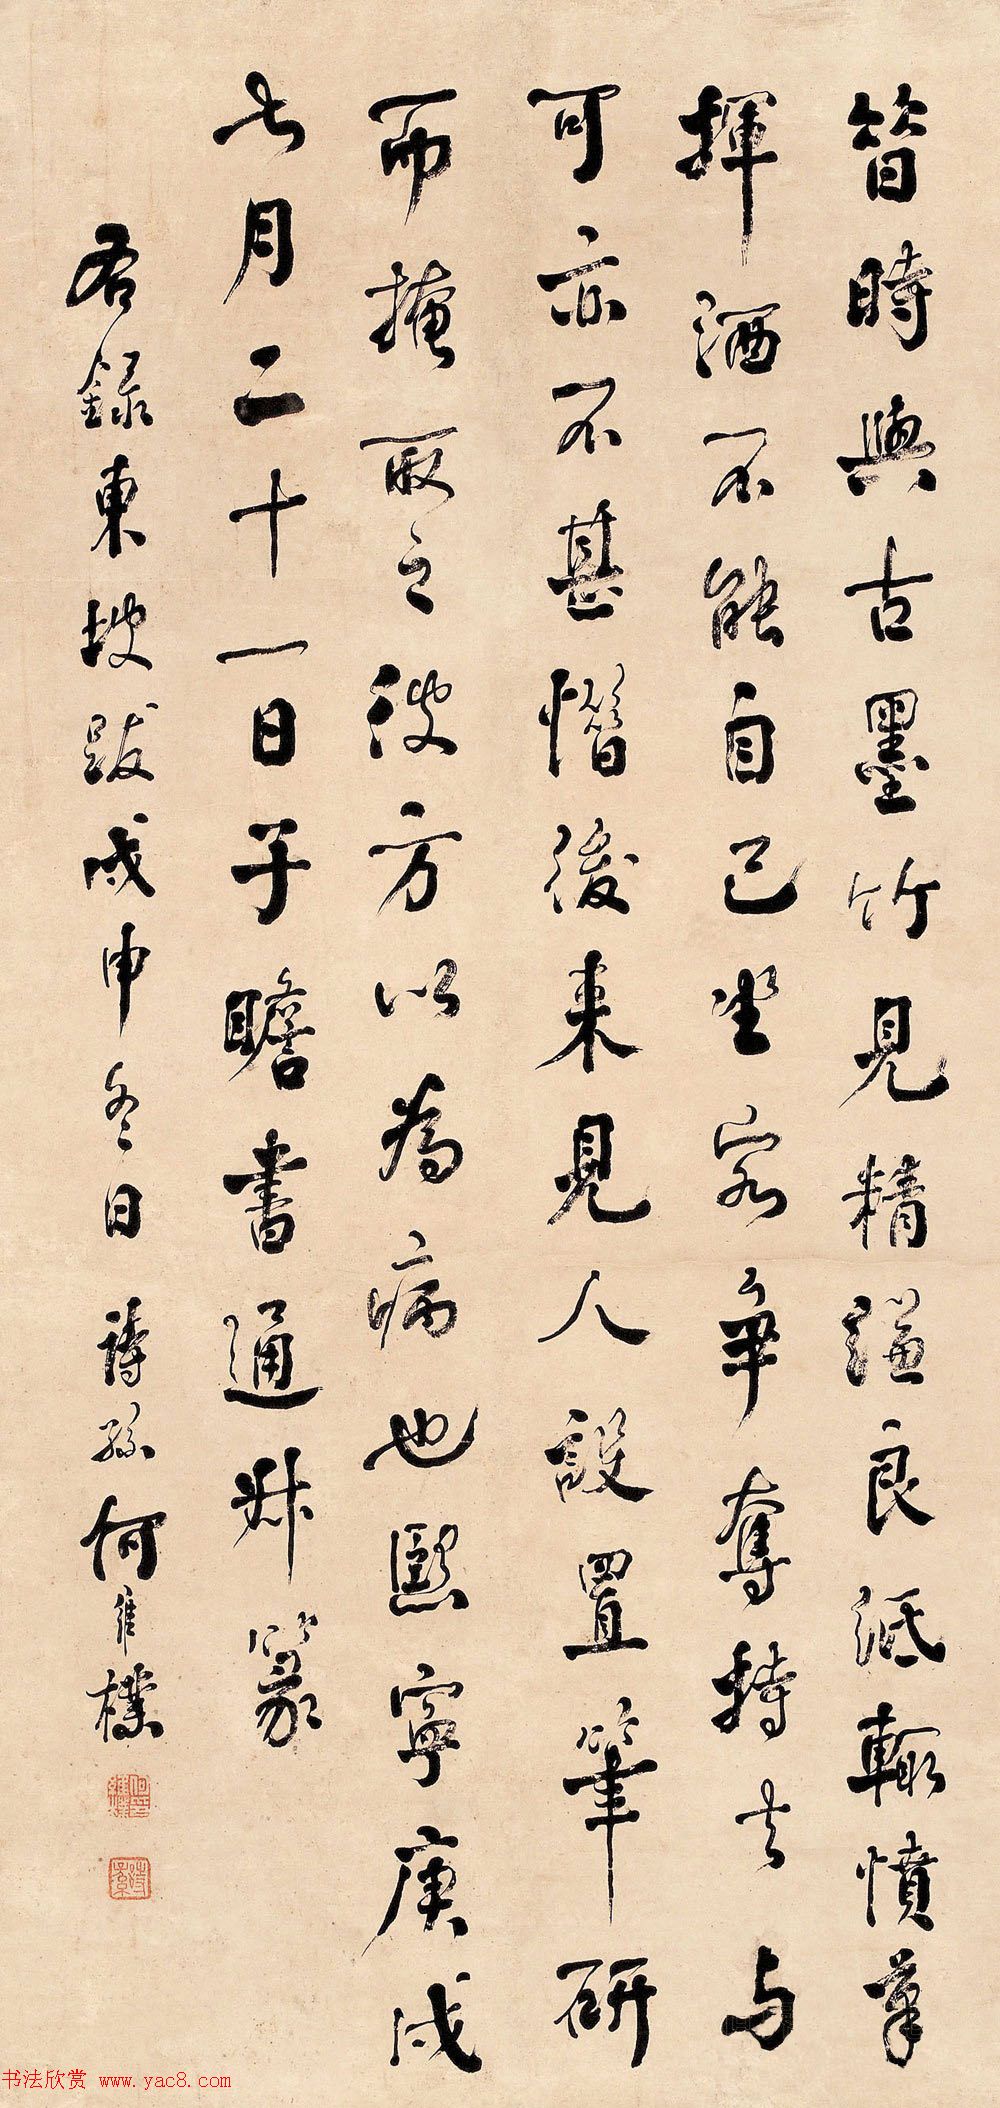 昔時與古墨竹見精縑良紙輒憤筆
揮洒不能自已坐客爭奪持去與
可亦不甚惜後來見人設置筆研
而掩取之彼方以為病也熙寧庚戌
七月二十一日子瞻書通叔篆
右錄東坡跋戊申冬日詩孫何維樸
何維樸印
詩孫
书法欣赏 www.yac8.com